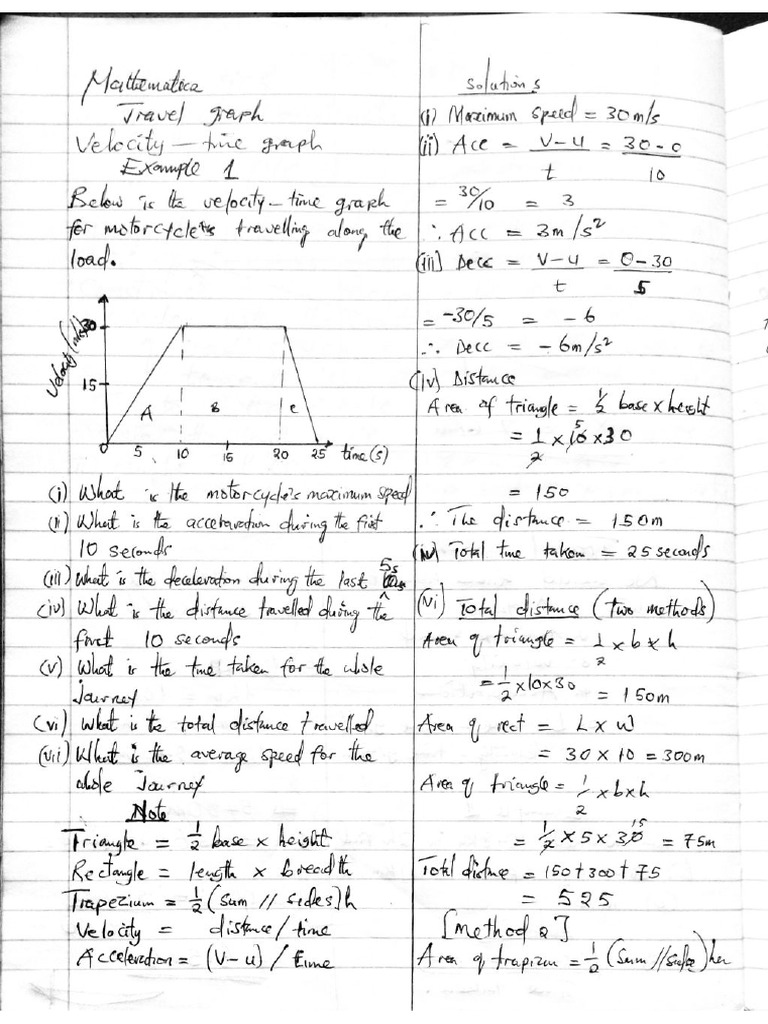 Mathematics
Travel graph
Velocity – time graph
Example 1
Below is the velocity – time graph
for motorcycle travelling along the
load.
Velocity (m/s)
30
15
A
B
C
0 5 10 15 20 25 time (s)
(i) What is the motorcycle's maximum speed
(ii) What is the acceleration during the first
10 seconds
(iii) What is the deceleration during the last 5s
(iv) What is the distance travelled during the
first 10 seconds
(v) What is the time taken for the whole
journey
(vi) What is the total distance travelled
(vii) What is the average speed for the
whole Journey
Note
Triangle = 1/2 base × height
Rectangle = length × breadth
Trapezium = 1/2 (sum // sides) h
Velocity = distance / time
Acceleration = (V – u) / time
Solutions
(i) Maximum speed = 30 m/s
(ii) Acc = V – u / t = 30 – 0 / 10
= 30/10 = 3
∴ Acc = 3m/s²
(iii) Decc = V – u / t = 0 – 30 / 5
= -30/5 = – 6
∴ Decc = – 6m/s²
(iv) Distance
Area of triangle = 1/2 base × height
= 1/2 × 10 5 × 30
= 150
∴ The distance = 150m
Total time taken = 25 seconds
(vi) Total distance (two methods)
Area of triangle = 1/2 × b × h
= 1/2 × 10 × 30 = 150m
Area of rect = L × W
= 30 × 10 = 300m
Area of triangle = 1/2 × b × h
= 1/2 × 5 × 30 15 = 75m
Total distance = 150 + 300 + 75
= 525
[Method 2]
Area of trapizum = 1/2 (Sum // sides)